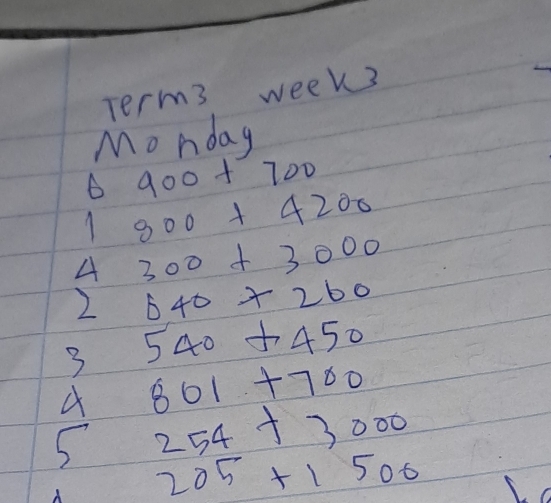 Term3 week3
Monday
6 900 + 700
1 800 + 4200
4 300 + 3000
2 640 + 260
3 540 + 450
4 801 + 700
5 254 + 3000
205 + 1 500